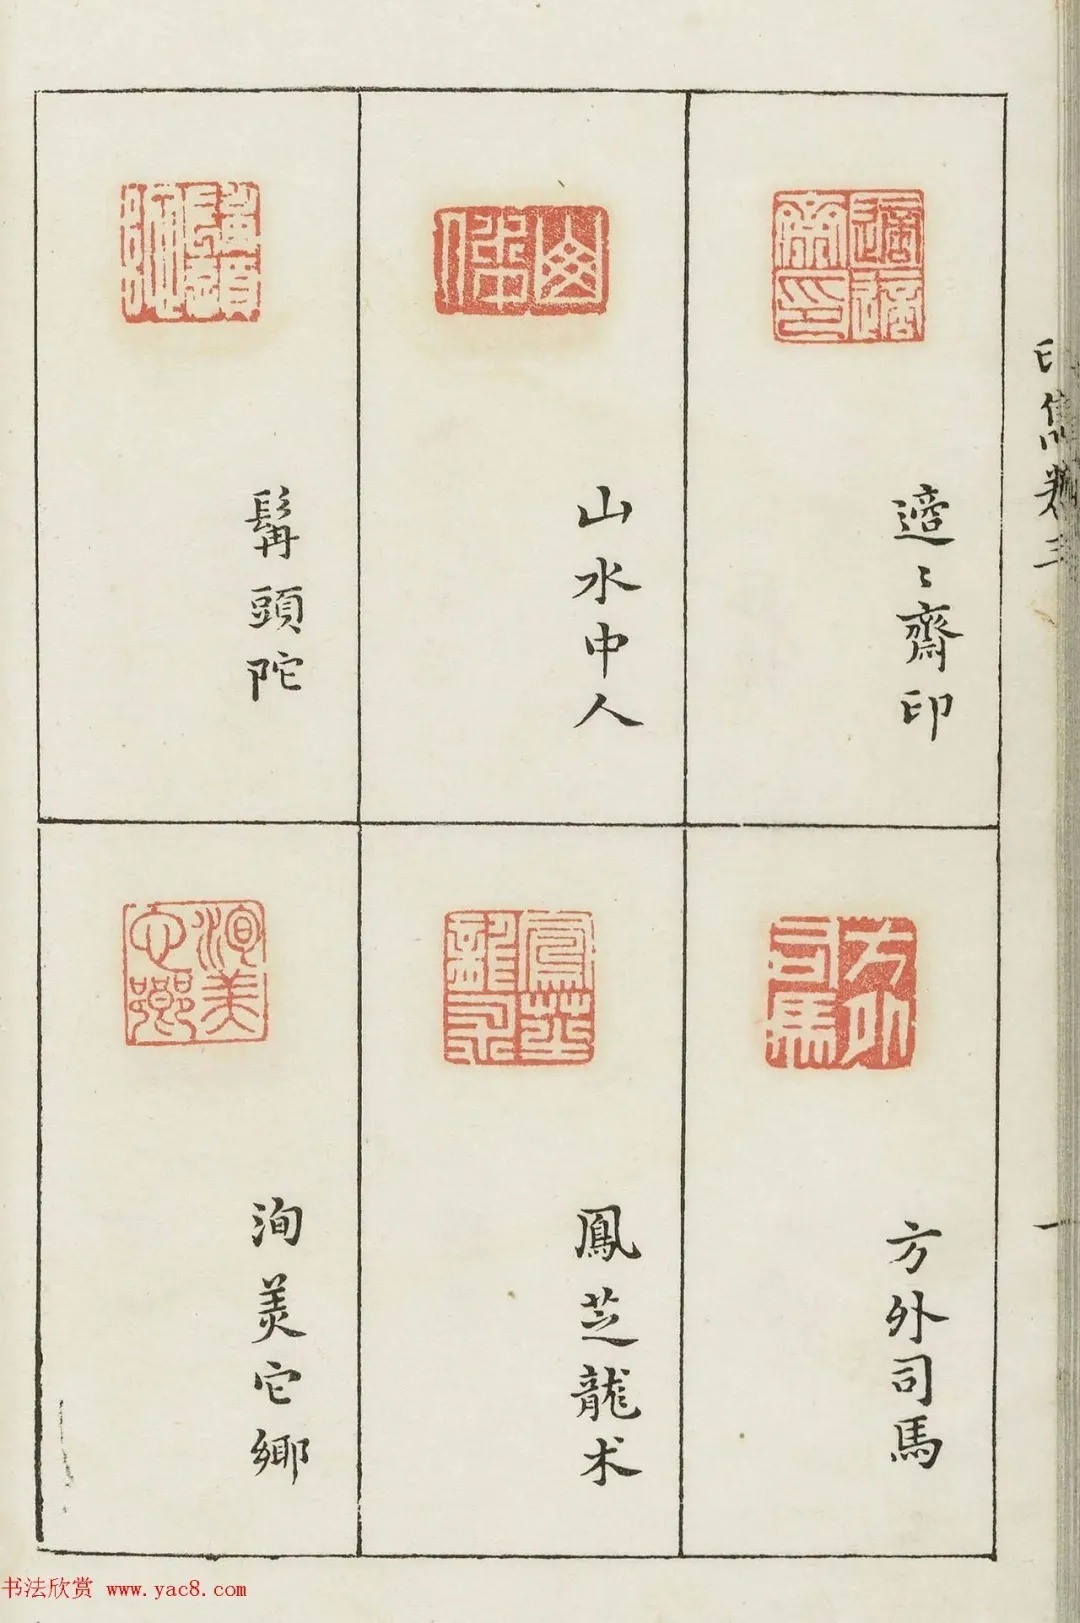 印雋卷三
適〻齋印
山水中人
髯頭陀
方外司馬
鳳芝龍朮
洵美它鄉
一
书法欣赏 www.yac8.com